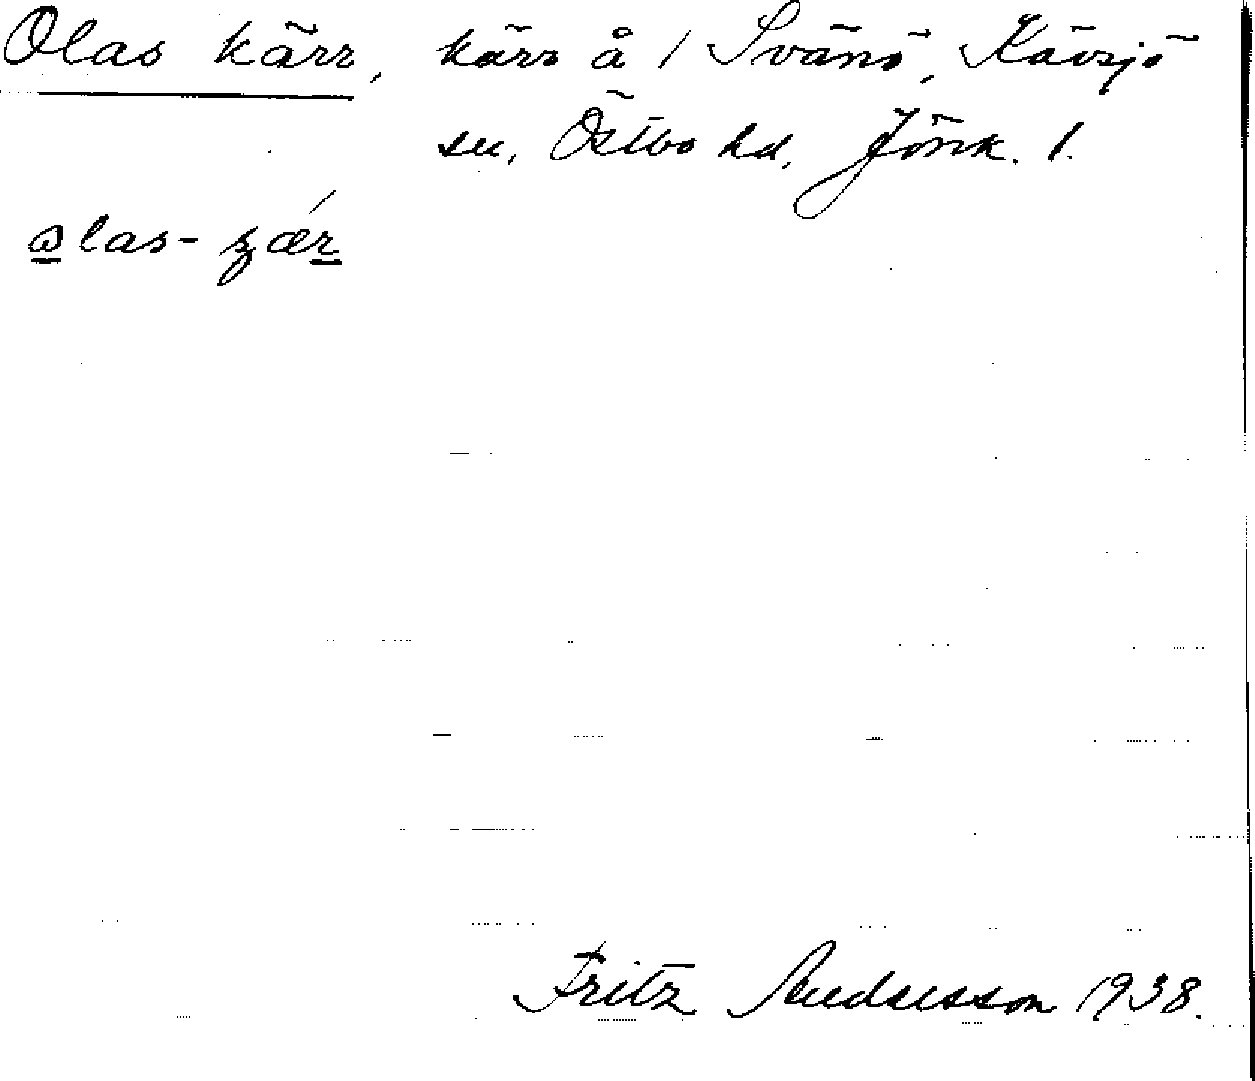 Olas kärr, kärr å / Svänö, Kävsjö
sn, Östbo hd, Jönk. l.
Fritz Andersson 1938.